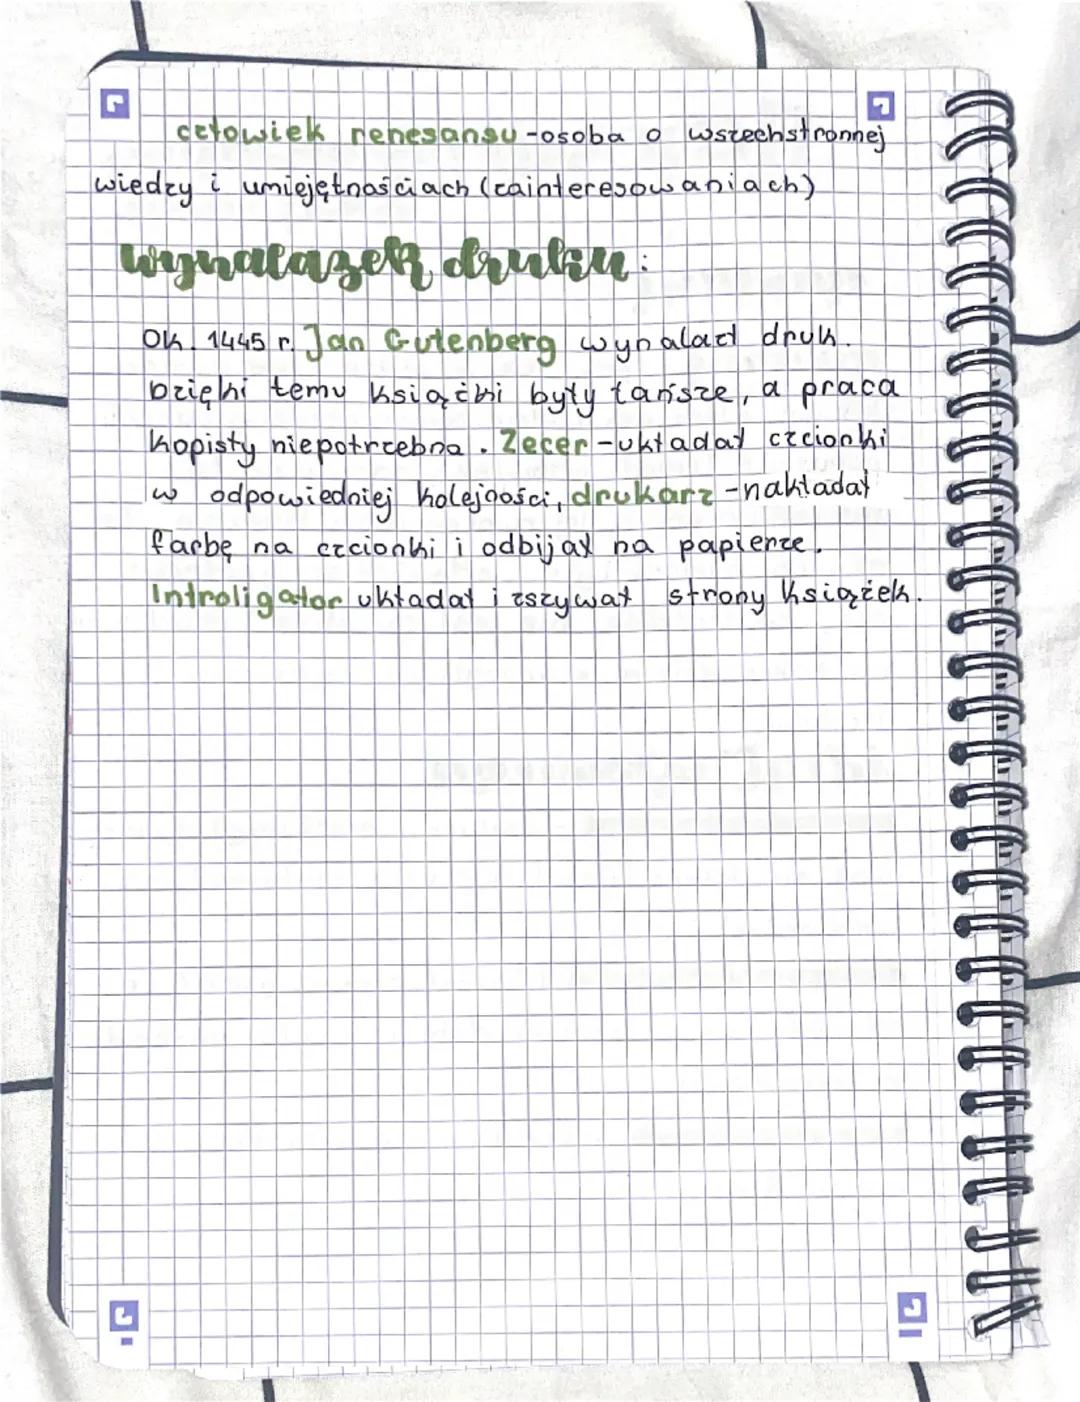 człowiek renesansu - osoba o wszechstronnej
wiedzy i umiejętnościach (zainteresowaniach)
wynalazek druku:
Ok. 1445 r. Jan Gutenberg wynalazł druk.
Dzięki temu książki były tańsze, a praca
kopisty niepotrzebna. Zecer - układał czcionki
w odpowiedniej kolejności, drukarz - nakładał
farbę na czcionki i odbijał na papierze.
Introligator układał i zszywał strony książek.